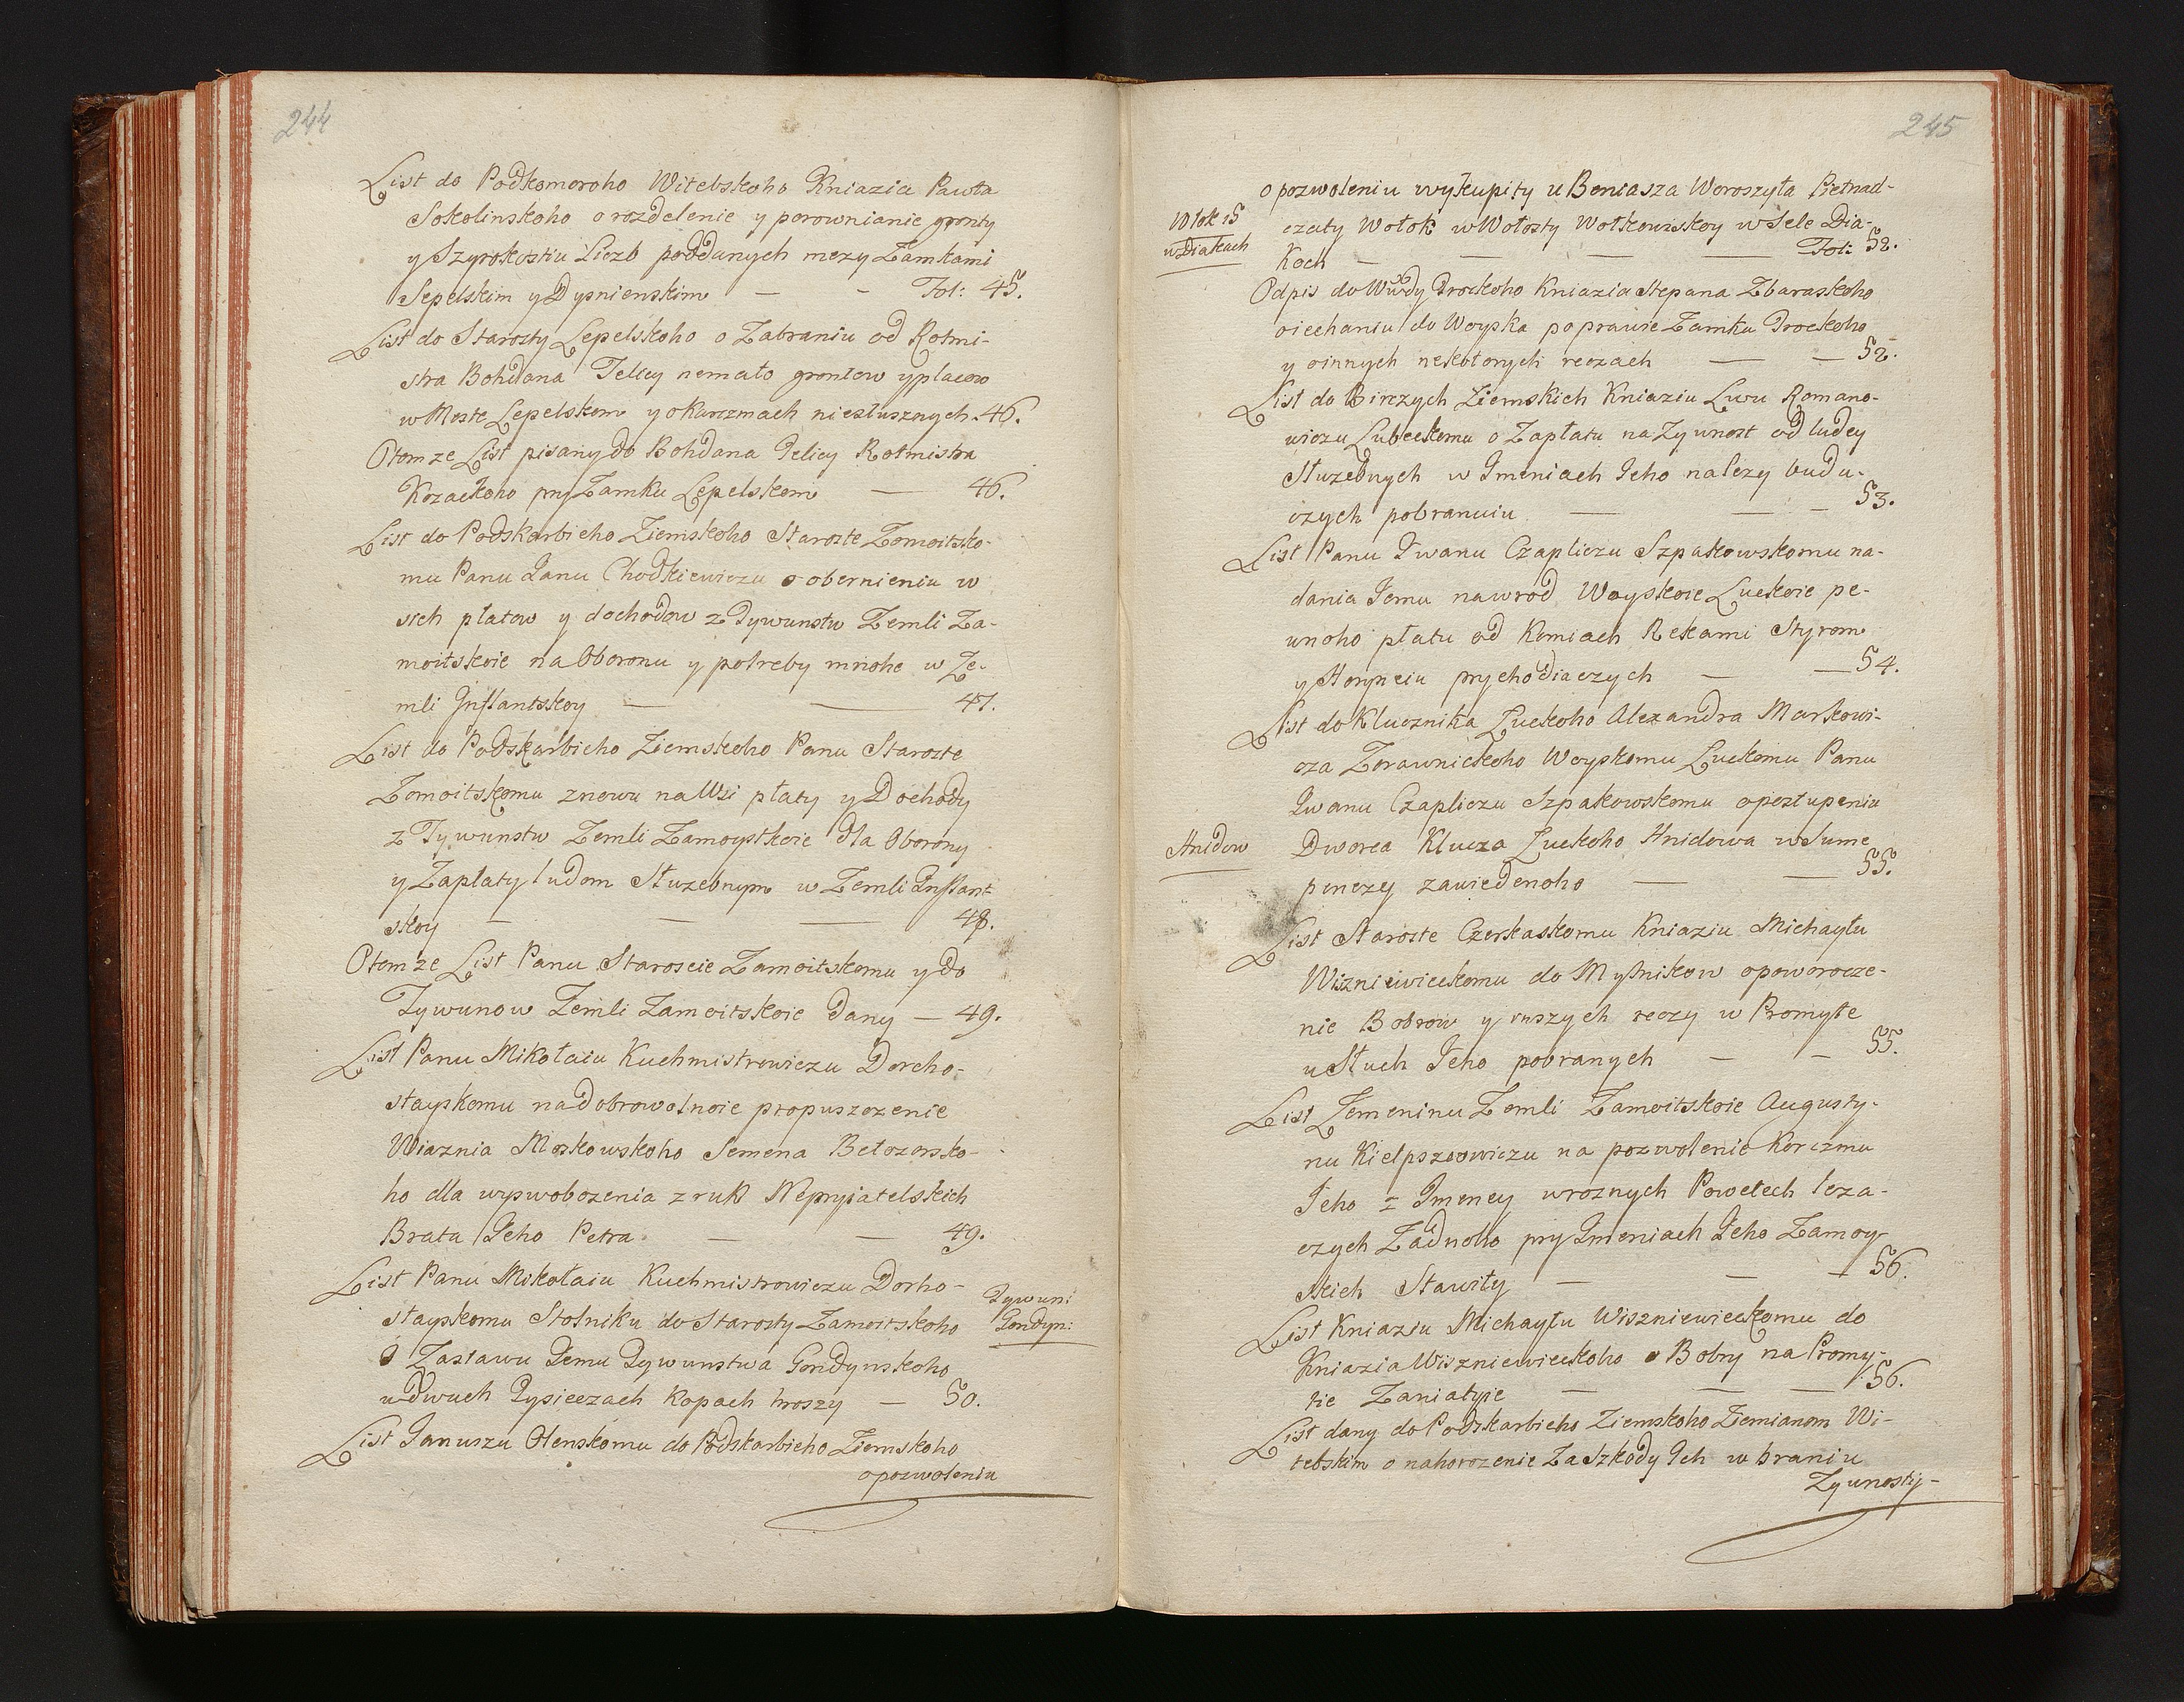 244
List do Podkomoroho Witebskoho Kniazia Pawła
Sokolinskoho o rozdelenie y porownianie gronty
y Szyrokostiu Liczb poddanych mezy Zamkami
Lepelskim y Dysnienskim — - Fol: 45.
List do Starosty Lepelskoho o Zabraniu od Rotmi-
stra Bohdana Telicy nemało grontow y placow
w Meste Lepelskom y o Karczmach niesłusznych. 46.
O tom ze List pisany do Bohdana Telicy Rotmistra
Kozackoho pry Zamku Lepelskom — 46.
List do Podskarbieho Ziemskoho Staroste Zomoitsko-
mu Panu Janu Chodkiewiczu o obernieniu w
sich płatow y dochodow z Tywunstw Zemli Za-
moitskoie na Oboronu y potreby mnohe w Ze-
mli Inflantskoy — — 47.
List do Podskarbieho Ziemskoho Panu Staroste
Zomoitskomu znowu na Wsi płaty y Dochody
z Tywunstw Zemli Zamoystkoie dla Oborony
y Zapłaty ludom Służebnym w Zemli Inflant
skoy — — — 48.
O tom ze List Panu Staroscie Zamoitskomu y do
Tywunow Zemli Zamoitskoie dany — 49.
List Panu Mikołaiu Kuchmistrowiczu Dorcho-
stayskomu na dobrowolnoie propuszczenie
Wiaznia Moskowskoho Semena Bełozersko-
ho dla wyswobozenia z ruk Nepryiatelskich
Brata Jeho Petra. — — 49.
List Panu Mikołaiu Kuchmistrowiczu Dorho-
stayskomu Stolniku do Starosty Zamoitskoho
Tywun:
Gondyn:
o Zastawu Jemu Tywunstwa Gondynskoho
u dwuch Tysieczach Kopach hroszy — 50.
List Januszu Olenskomu do Podskarbieho Ziemskoho
o pozwoleniu
245
o pozwoleniu wykupity u Beniasza Woroszyła Pietnad-
Włok 15
w Diakach
czaty Wołok w Wołosty Wołkowiskoy w Sele Dia-
Koch — — — — Fol: 52.
Odpis do Wwdy Trockoho Kniazia Stepana Zbaraskoho
o iechaniu do Woyska po prawie Zamku Trockoho
y o innych nekotorych reczach — — 52.
List do Birczych Ziemskich Kniaziu Lwu Romano-
wiczu Lubeckomu o Zapłatu na Zywnost od ludey
Służebnych w Imeniach Jeho na lezy budu-
czych pobranuiu — — — 53.
List Panu Iwanu Czapliczu Szpakowskomu na-
dania Jemu nawrod Woyskoie Luckoie pe-
wnoho płatu od Komiach Rekami Styrom
y Horynciu prychodiaczych — — 54.
List do Klucznika Luckoho Alexandra Markowi-
cza Zorawnickoho Woyskomu Luckomu Panu
Iwanu Czapliczu Szpakowskomu o postupeniu
Hnidow
Dworca Klucza Luckoho Hnidowa w Sume
penezey zawiedenoho — — 55.
List Staroste Czerkaskomu Kniaziu Michayłu
Wiszniewieckomu do Mytnikow o poworocze-
nie Bobrow y inszych reczy w Promyte
u Słuch Jeho pobranych — — 55.
List Zemeninu Zemli Zamoitskoie Augusty-
nu Kielpszowiczu na pozwolenie Korczmu
Jeho z Imeney w roznych Powetech leza-
czych Zadnoho pry Imeniach Jeho Zamoy
skich Stawity — — — 56.
List Kniaziu Michayłu Wiszniewieckomu do
Kniazia Wiszniewieckoho o Bobry na Promy-
tie Zaniatyie — — — 56.
List dany do Podskarbieho Ziemskoho Ziemianom Wi-
tebskim o nahorozenie Za Szkody Ich w braniu
Zywnosty-